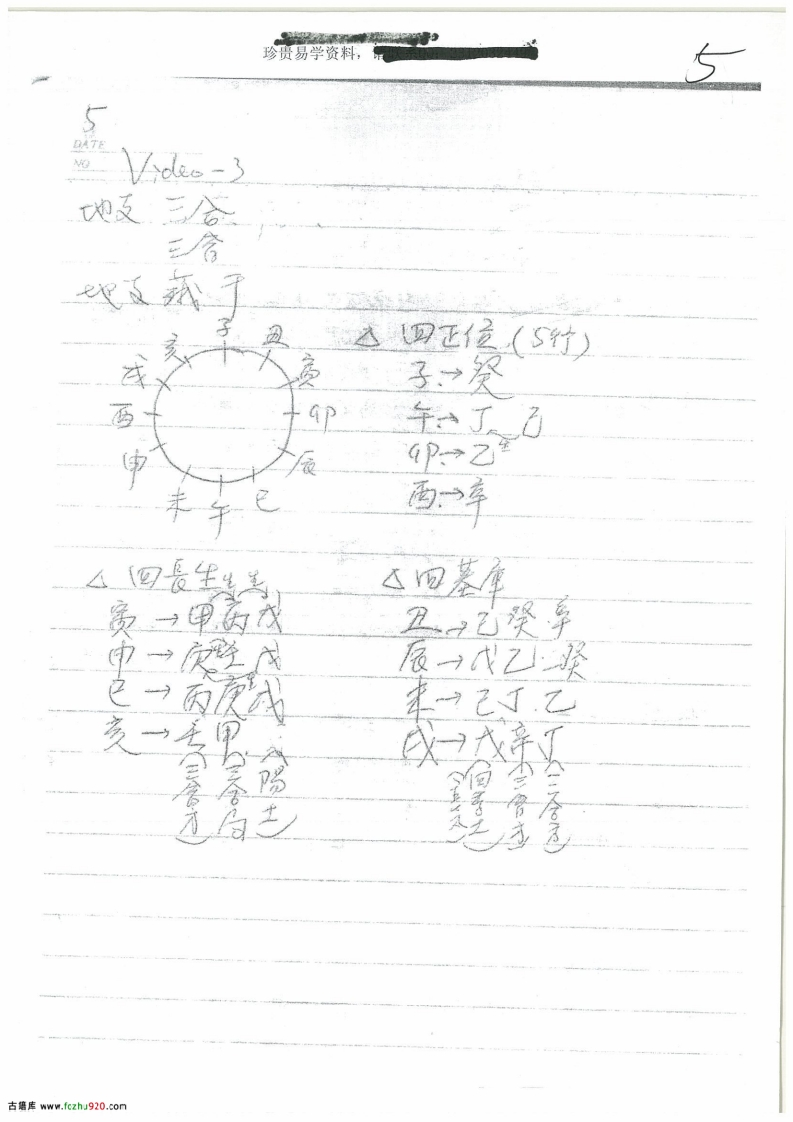 珍贵易学资料，
5
5
DATE
NO
Video-3
地支 三合
三會
地支藏干
子
丑
寅
卯
辰
巳
午
未
申
酉
戌
亥
△ 四正位(5行)
子→癸
午→丁 己
卯→乙
酉→辛
△ 四長生
生 生
寅→甲丙戊
申→庚壬戊
巳→丙庚戊
亥→壬甲
(三會方)
(三合局)
(陽土)
△ 四墓庫
丑→己癸辛
辰→戊乙癸
未→己丁乙
戌→戊辛丁
(四季土)
(三會方)
(三合方)
古籍库 www.fozhu920.com